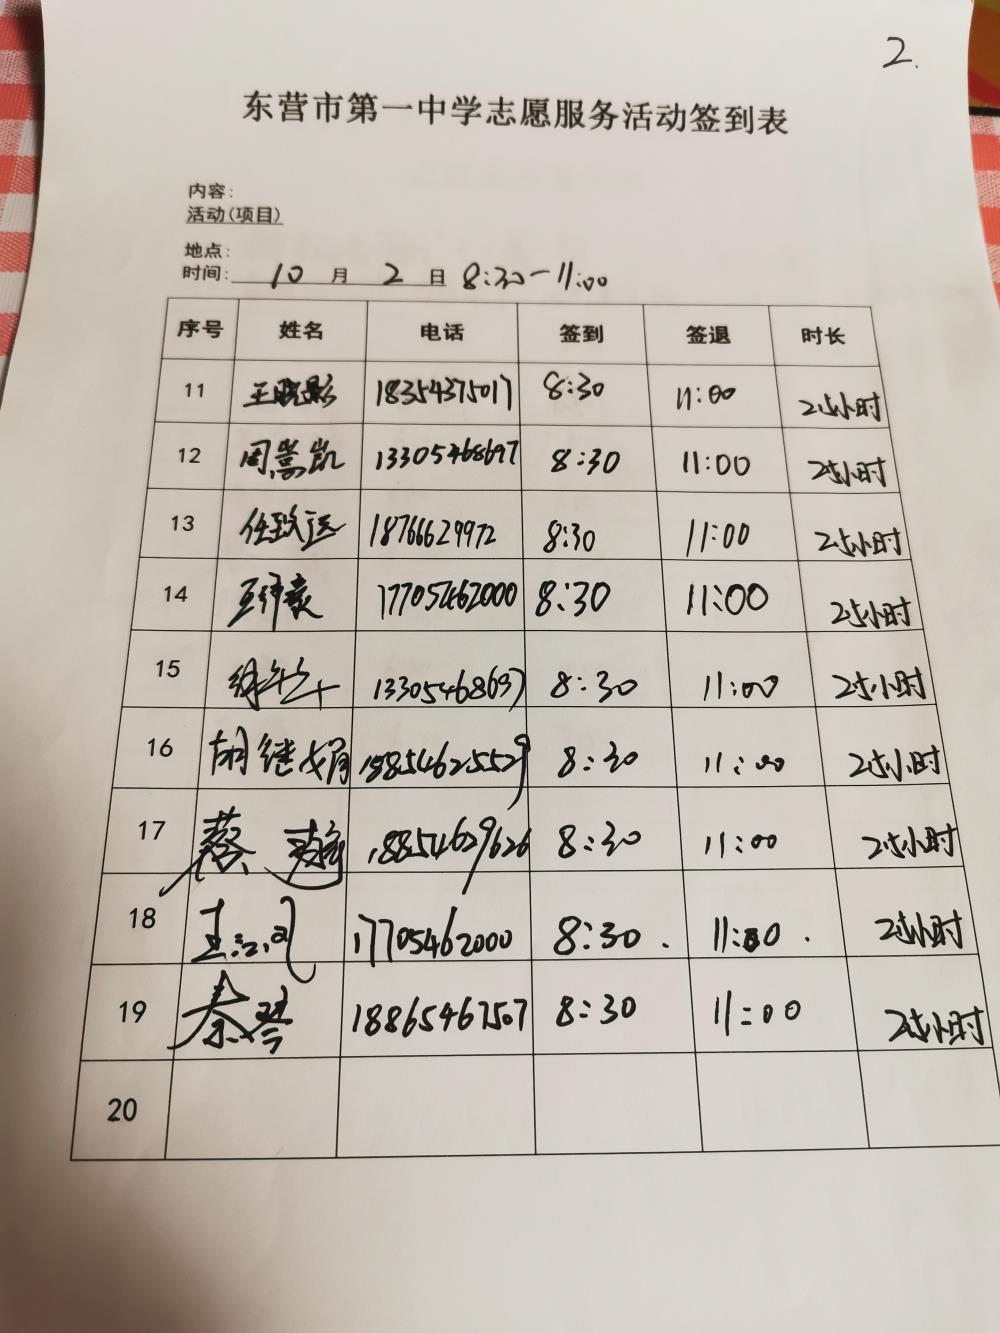 2.
东营市第一中学志愿服务活动签到表
内容:
活动(项目)
地点:
时间: 10 月 2 日 8:30-11:00
序号 姓名 电话 签到 签退 时长
11 王晓彤 18354375017 8:30 11:00 2.5小时
12 周嵩凯 13305468697 8:30 11:00 2.5小时
13 任致远 18766629972 8:30 11:00 2.5小时
14 17705462000 8:30 11:00 2.5小时
15 13305468697 8:30 11:00 2.5小时
16 胡继娟 15854625529 8:30 11:00 2.5小时
17 蔡 18854629626 8:30 11:00 2.5小时
18 王 17705462000 8:30. 11:00. 2.5小时
19 秦琴 18865467507 8:30 11:00 2.5小时
20